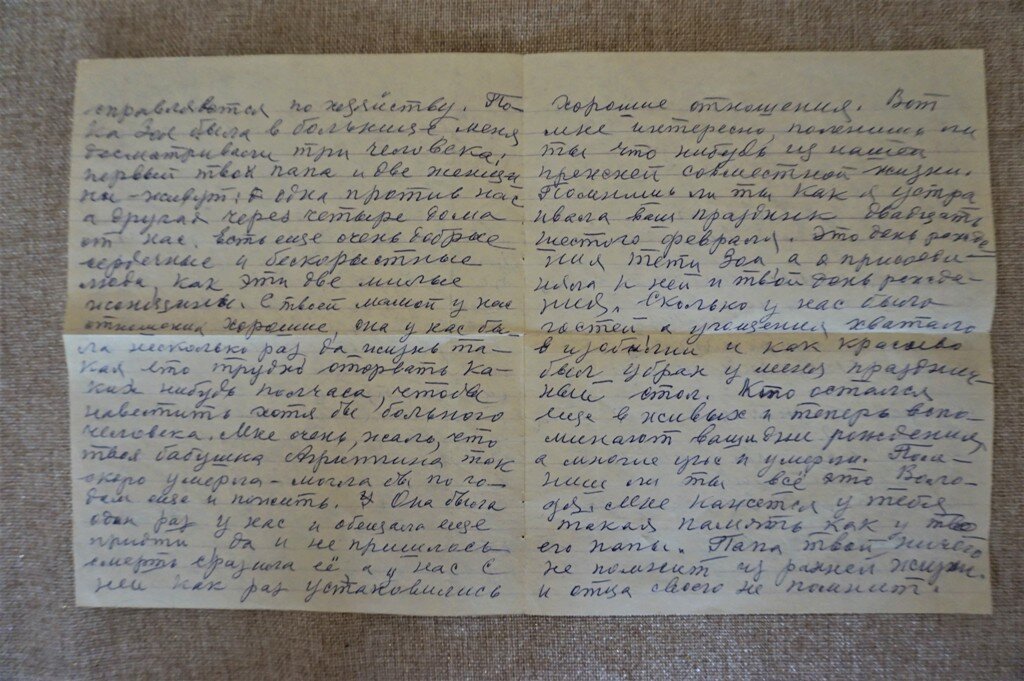 справляются по хозяйству. По-
ка Зоя была в больнице меня
досматривали три человека,
первый твой папа и две женщи
ны - живут: одна против нас
а другая через четыре дома
от нас. есть еще очень добрые
сердечные и бескорыстные
люди, как эти две милые
женщины. С твоей мамой у нас
отношения хорошие, она у нас бы-
ла несколько раз, да жизнь та-
кая что трудно оторвать ка-
ких нибудь полчаса, чтобы
навестить хотя бы больного
человека. Мне очень, жаль, что
твоя бабушка Агрипина так
скоро умерла - могла бы по го-
дам еще и пожить. Она была
один раз у нас и обещала еще
прийти да и не пришлось
смерть сразила её, а у нас с
ней как раз установились
хорошие отношения. Вот
мне интересно, помнишь ли
ты что нибудь из нашей
прежней совместной жизни.
Помнишь ли ты как я устра
ивала ваш праздник двадцать
шестого февраля. Это день рожде
ния тёти Зои, а я присоеди-
няла к ней и твой день рожде-
ния. Сколько у нас было
гостей а угощения хватало
в изобилии и как красиво
был убран у меня празднич-
ный стол. Кто остался
еще в живых и теперь вспо-
минают ваши дни рождения,
а многие уже и умерли. Пом-
ниш ли ты всё это Воло-
дя. Мне кажется у тебя
такая память как у тво
его папы. Папа твой ничего
не помнит из ранней жизни.
и отца своего не помнит.